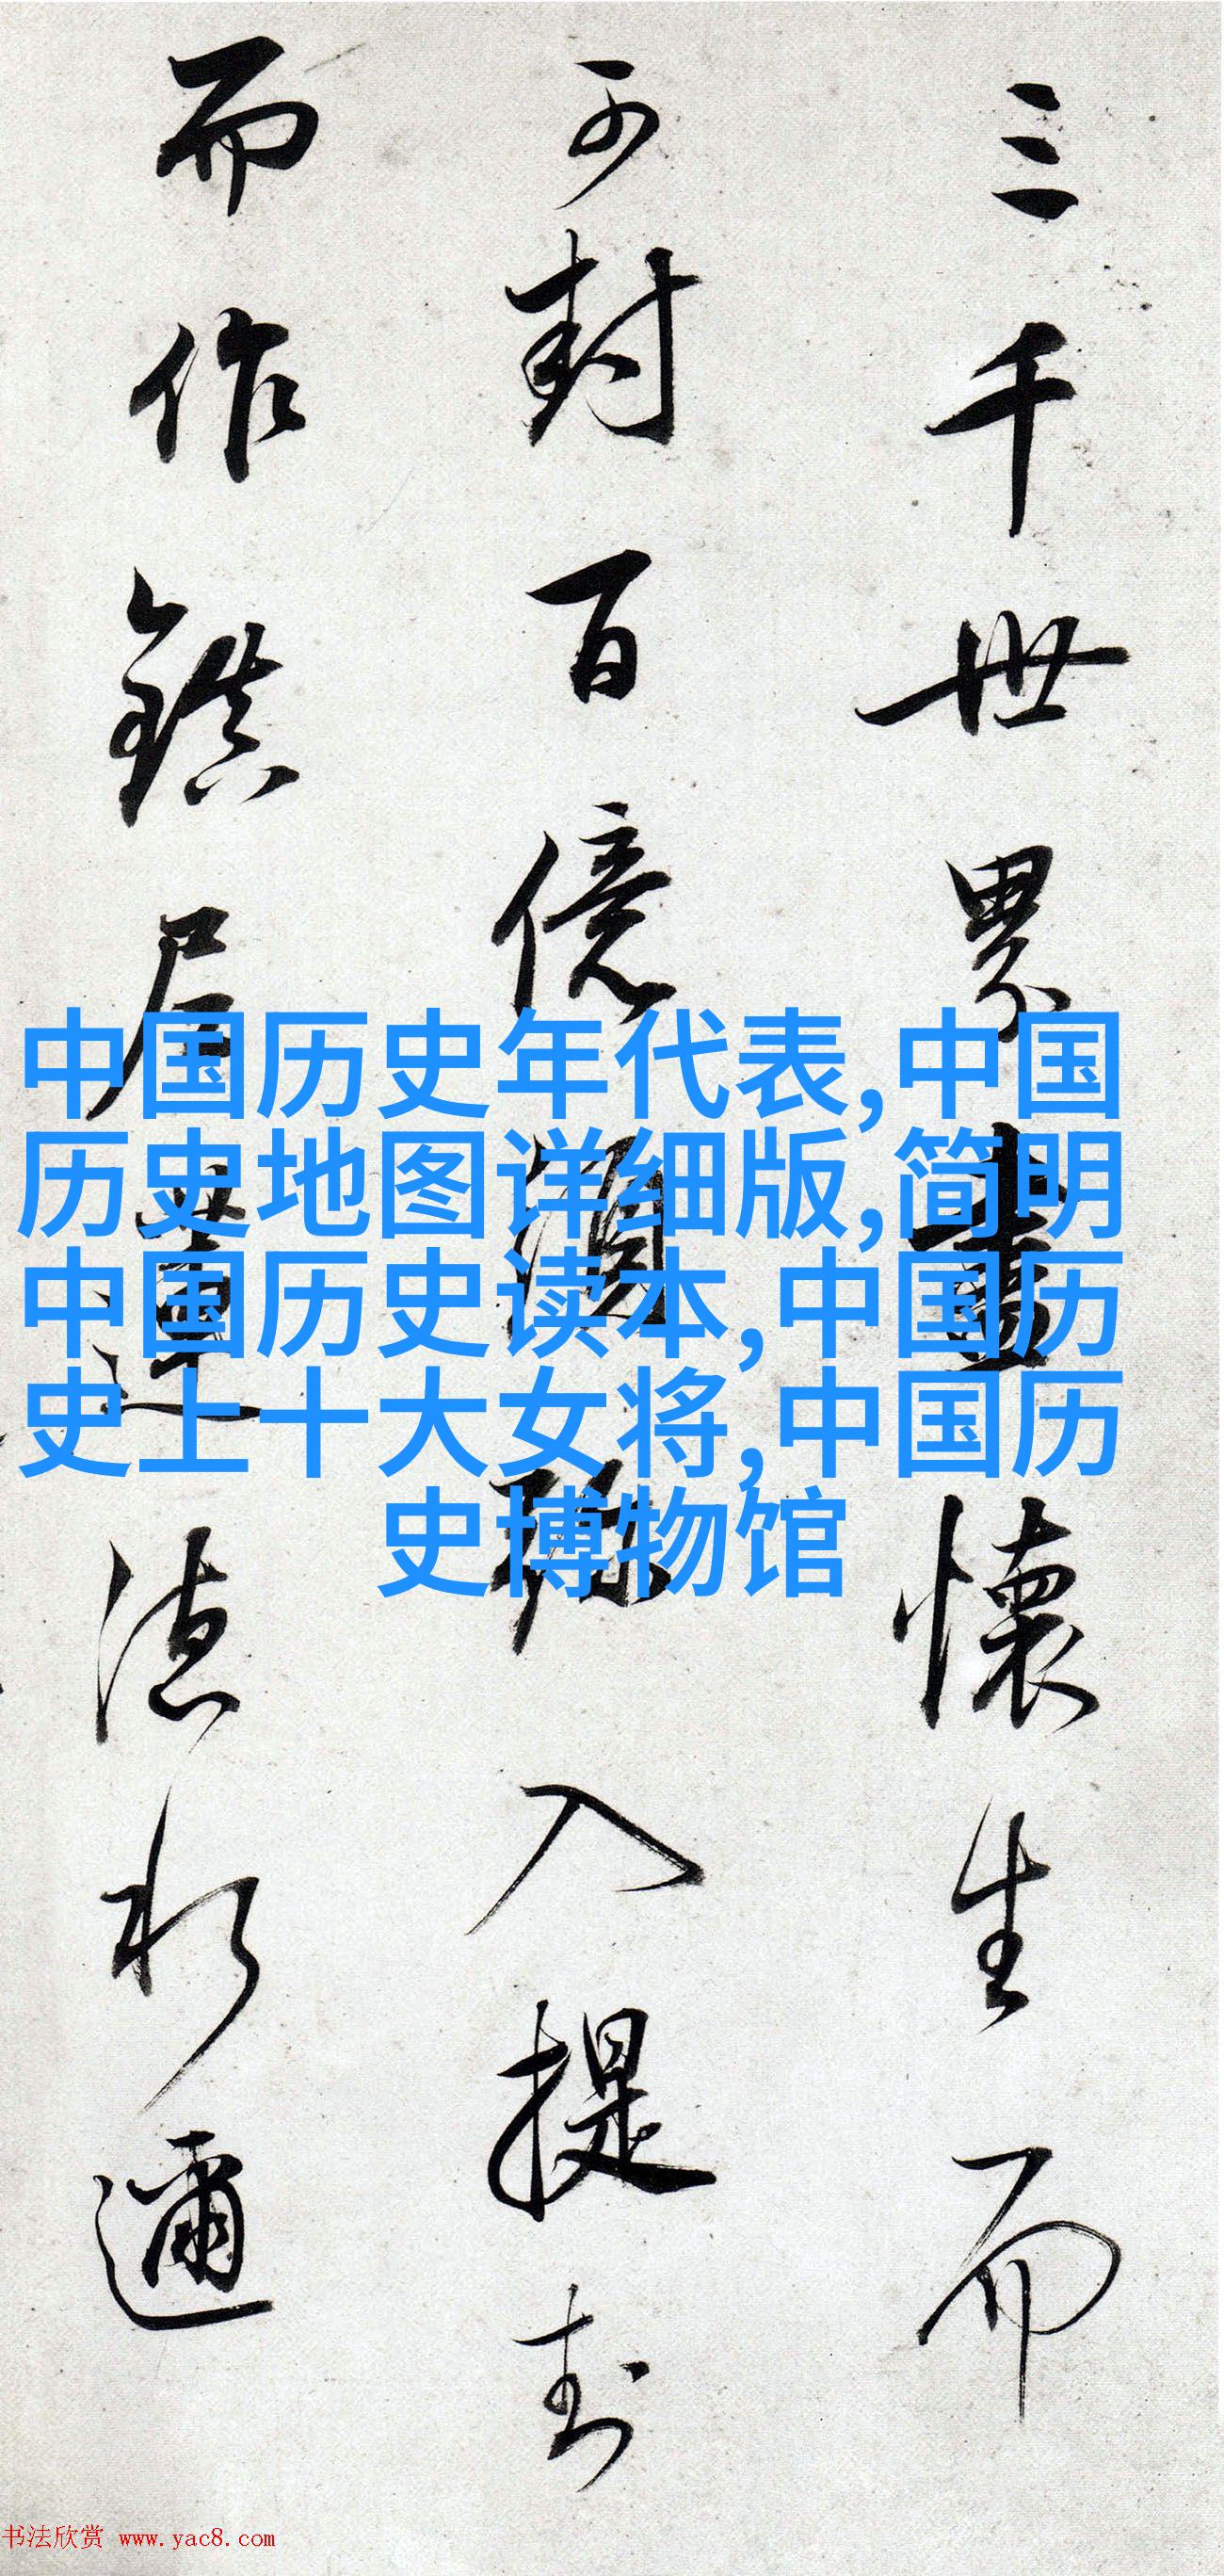 三千世界盡懷生而
可封百億須彌入提封
而作鎮居邇
中国历史年代表,中国
历史地图详细版,简明
中国历史读本,中国历
史上十大女将,中国历
史博物馆
书法欣赏 www.yac8.com